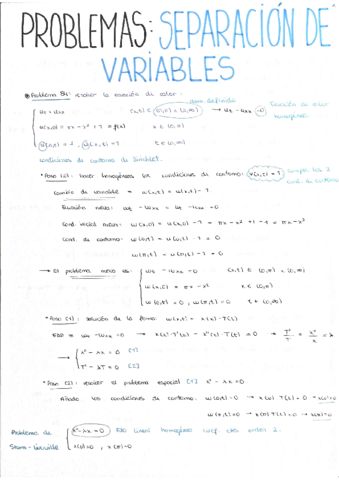 PROBLEMAS: SEPARACIÓN DE
VARIABLES
Problema 84: resolver la ecuación de calor:
(x,t) ∈ (0,π) × (0,∞) → ut - uxx = 0 Ecuación de calor
homogénea
u(x,0) = πx - x² + 1 = f(x) x ∈ (0,π)
u(0,t) = 1 , u(π,t) = 1 t ∈ (0,∞)
condiciones de contorno de Dirichlet.
*Paso [0]: hacer homogéneas las condiciones de contorno: v(x,t) = 1 cumple las 2
cond. de contorno
Cambio de variable = w(x,t) = u(x,t) - 1
Ecuación nueva: wt - wxx = ut - uxx = 0
Cond. inicial nueva: w(x,0) = u(x,0) - 1 = πx - x² + 1 - 1 = πx - x²
Cond. de contorno: w(0,t) = u(0,t) - 1 = 0
w(π,t) = u(π,t) - 1 = 0
→ El problema nuevo es: wt - wxx = 0 (x,t) ∈ (0,π) × (0,∞)
w(x,0) = πx - x² x ∈ (0,π)
w(0,t) = 0 , w(π,t) = 0 t ∈ (0,∞)
*Paso [1]: solución de la forma: w(x,t) = X(x)·T(t)
EDP = wt - wxx = 0 → X(x)·T'(t) - X''(x)·T(t) = 0 → T'/T = X''/X = λ
→ X'' - λX = 0 [1]
T' - λT = 0 [2]
*Paso [2]: resolver el problema espacial [1] X'' - λX = 0
Añado las condiciones de contorno: w(0,t) = 0 → X(0)·T(t) = 0 → X(0) = 0
w(π,t) = 0 → X(π)·T(t) = 0 → X(π) = 0
Problema de X'' - λX = 0 EDO lineal homogénea coef. ctes orden 2.
Sturm-Liouville X(0) = 0 , X(π) = 0